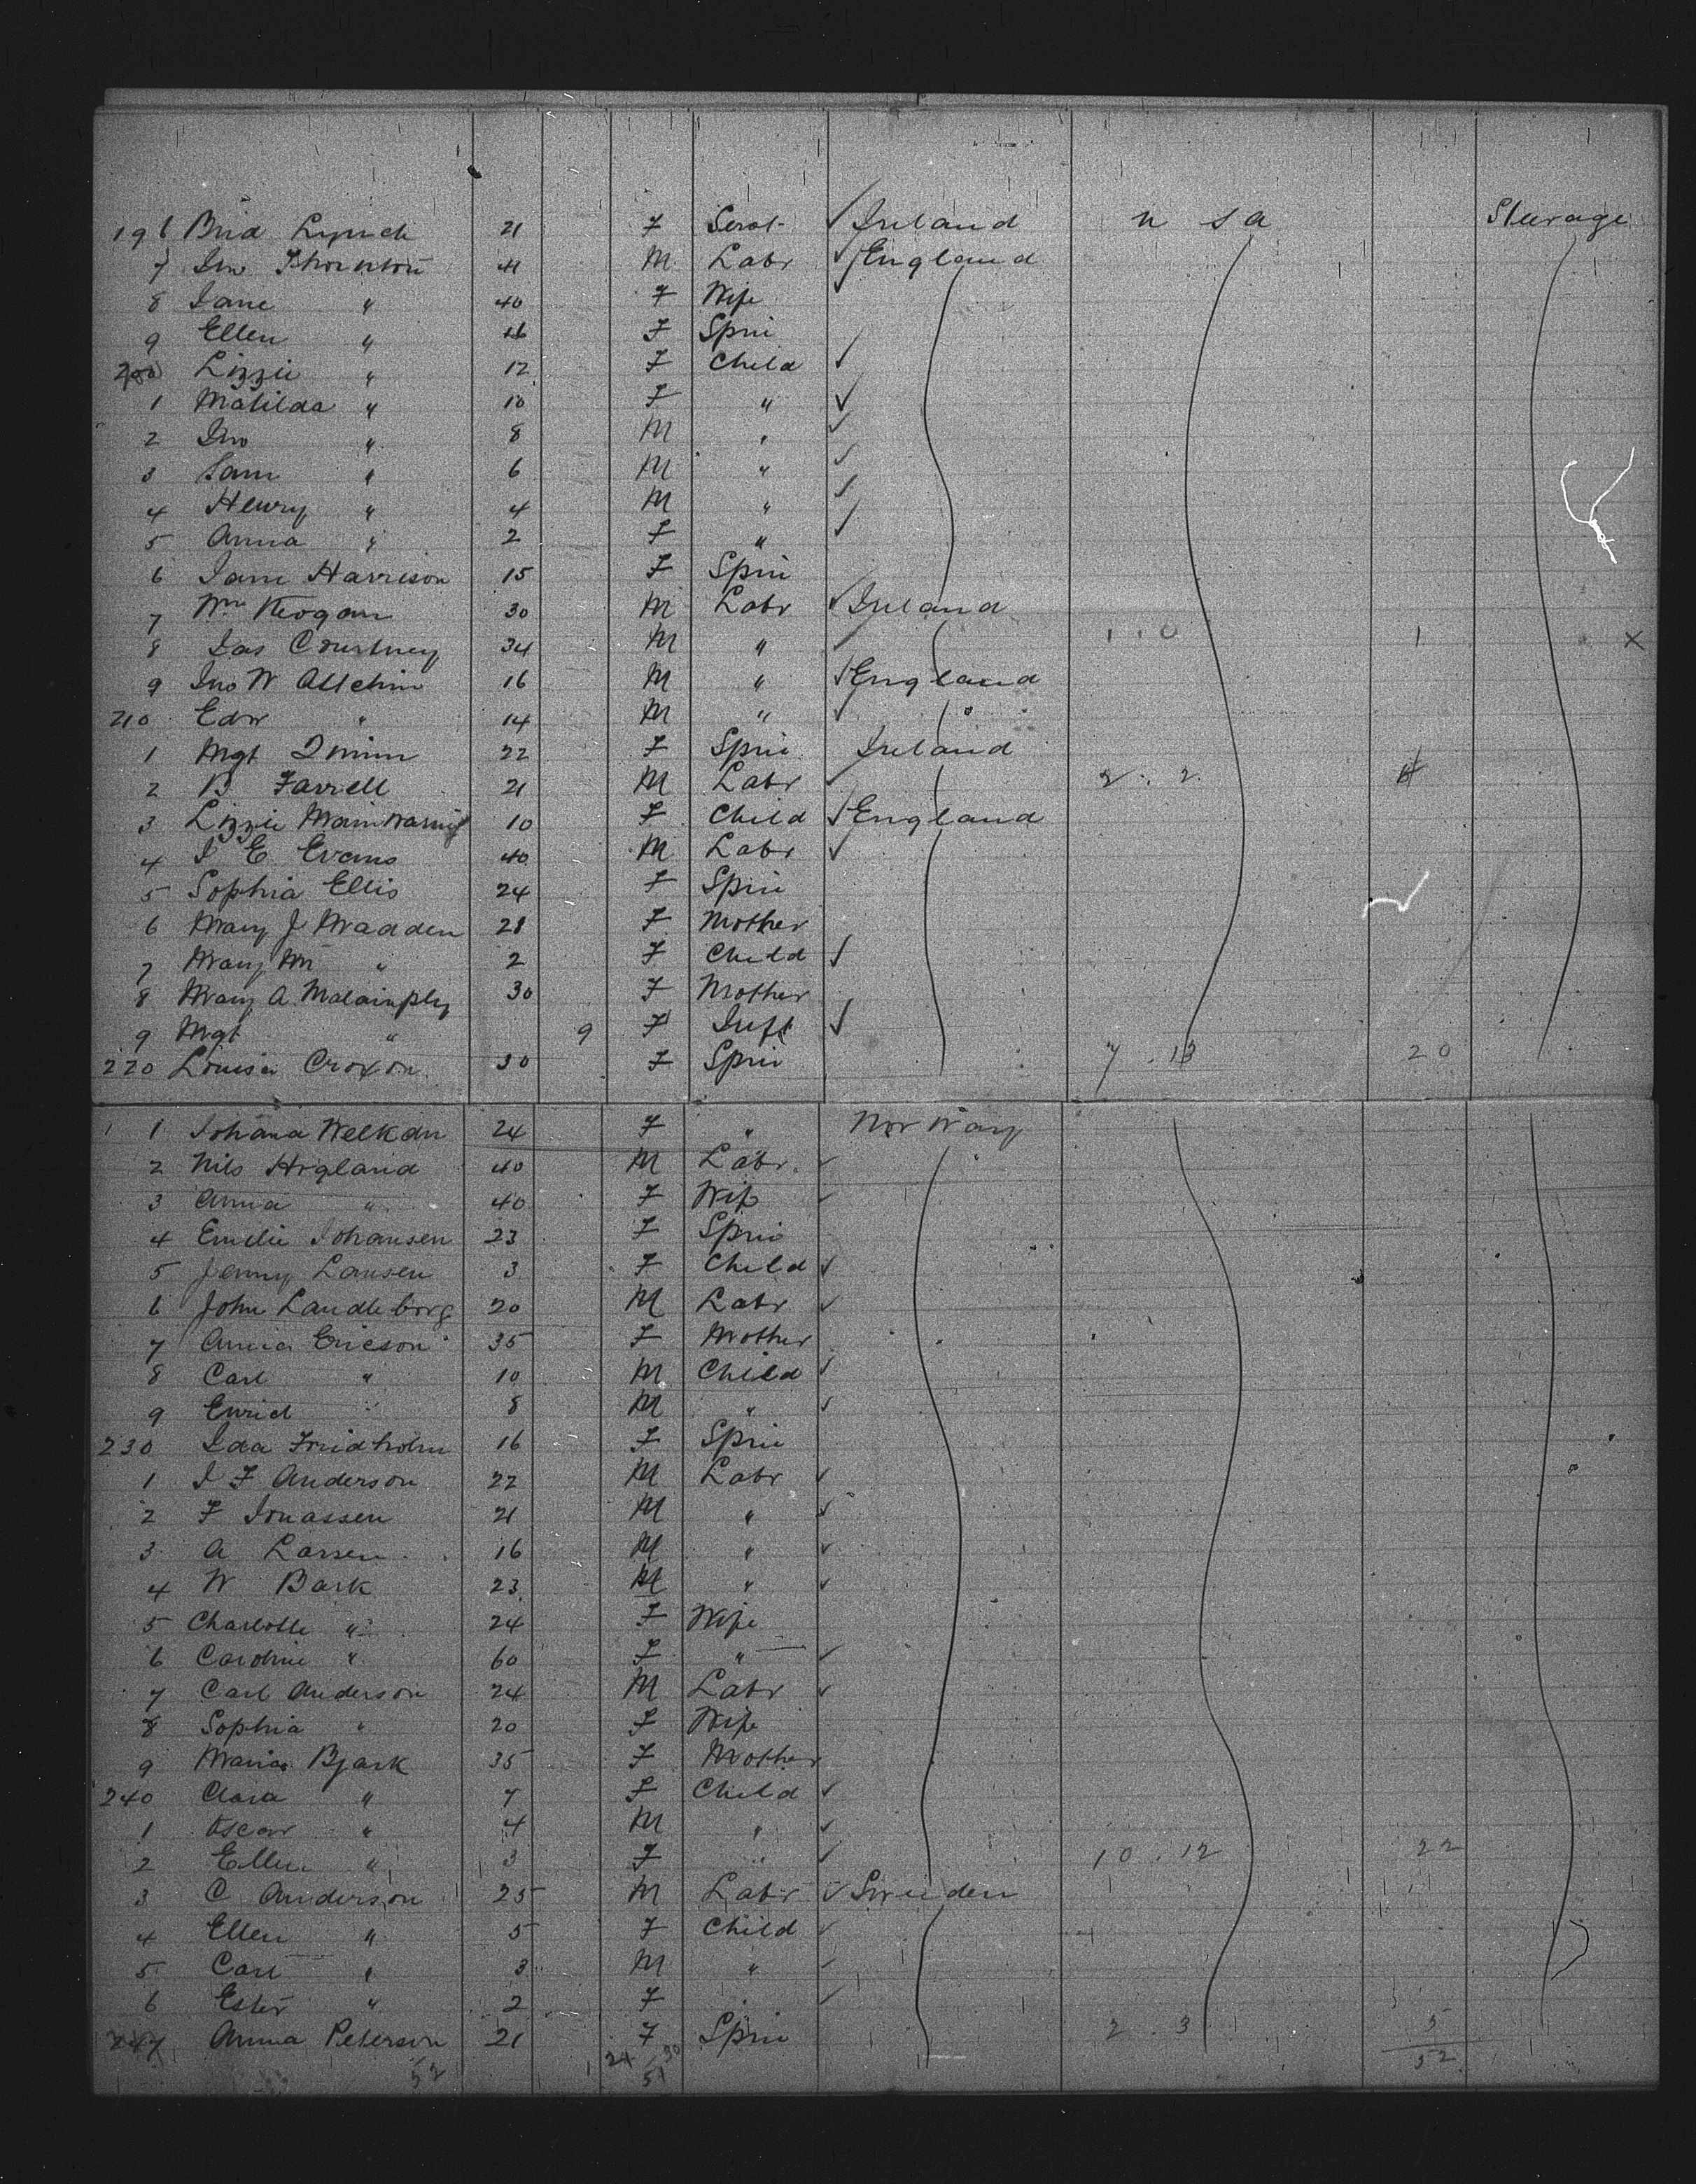 196 Brid Lynch 21 F Servt ✓ Ireland U S A Steerage
7 Jno Thornton 41 M Labr ✓ England
8 Jane " 40 F Wife ✓
9 Ellen " 16 F Spin
200 Lizzie " 12 F Child ✓
1 Matilda " 10 F " ✓
2 Jno " 8 M " ✓
3 Sam " 6 M " ✓
4 Henry " 4 M " ✓
5 Anna " 2 F " ✓
6 Jane Harrison 15 F Spin
7 Wm Keogan 30 M Labr ✓ Ireland
8 Jas Courtney 34 M " ✓ 1 . 0 1 X
9 Jno W Allchin 16 M " ✓ England
210 Edw " 14 M " ✓
1 Mgt Quinn 22 F Spin Ireland
2 B Farrell 21 M Labr ✓ 2 . 2 4
3 Lizzie Mainwaring 10 F Child ✓ England
4 J E Evans 40 M Labr ✓
5 Sophia Ellis 24 F Spin
6 Mary J Madden 28 F Mother
7 Mary M " 2 F Child ✓
8 Mary A 30 F Mother
9 Mgt " 9 F Inft ✓
220 Louisa Croxon 30 F Spin 7 . 13 20
1 Johana 24 F " Norway
2 Nils Hogland 40 M Labr ✓
3 Anna " 40 F Wife ✓
4 Emilie Johansen 23 F Spin
5 Jenny Lansen 3 F Child ✓
6 John Landleborg 20 M Labr ✓
7 Anna Ericson 35 F Mother
8 Carl " 10 M Child ✓
9 Enrich " 8 M " ✓
230 Ida Fridholm 16 F Spin
1 J F Anderson 22 M Labr ✓
2 F Jonassen 21 M " ✓
3 A Larsen 16 M " ✓
4 W Bark 23 M " ✓
5 Charlotte " 24 F Wife
6 Caroline " 60 F " ✓
7 Carl Anderson 24 M Labr ✓
8 Sophia " 20 F Wife
9 Maria Bjark 35 F Mother
240 Clara " 7 F Child ✓
1 Oscar " 4 M " ✓
2 Ellen " 3 F " ✓ 10 . 12 22
3 C Anderson 25 M Labr ✓ Sweden
4 Ellen " 5 F Child ✓
5 Carl " 3 M " ✓
6 Ester " 2 F " ✓
247 Anna Peterson 21 F Spin 2 . 3 5
52 21 30 51 52